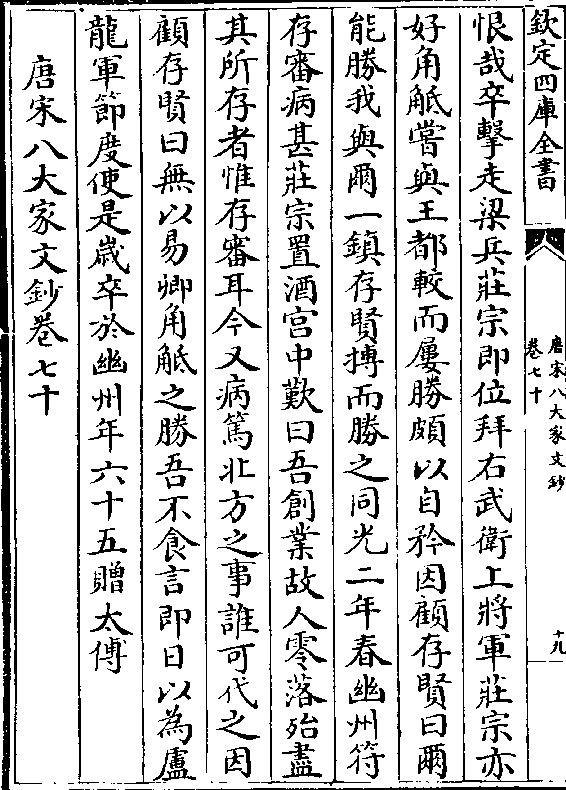 欽定四庫全書
唐宋八大家文鈔
卷七十
十九
恨哉卒擊走梁兵莊宗即位拜右武衛上將軍莊宗亦
好角觝嘗與王都較而屢勝頗以自矜因顧存賢曰爾
能勝我與爾一鎮存賢搏而勝之同光二年春幽州符
存審病甚莊宗置酒宫中歎曰吾創業故人零落殆盡
其所存者惟存審耳今又病篤北方之事誰可代之因
顧存賢曰無以易卿角觝之勝吾不食言即日以為盧
龍軍節度使是歲卒於幽州年六十五贈太傅
唐宋八大家文鈔卷七十